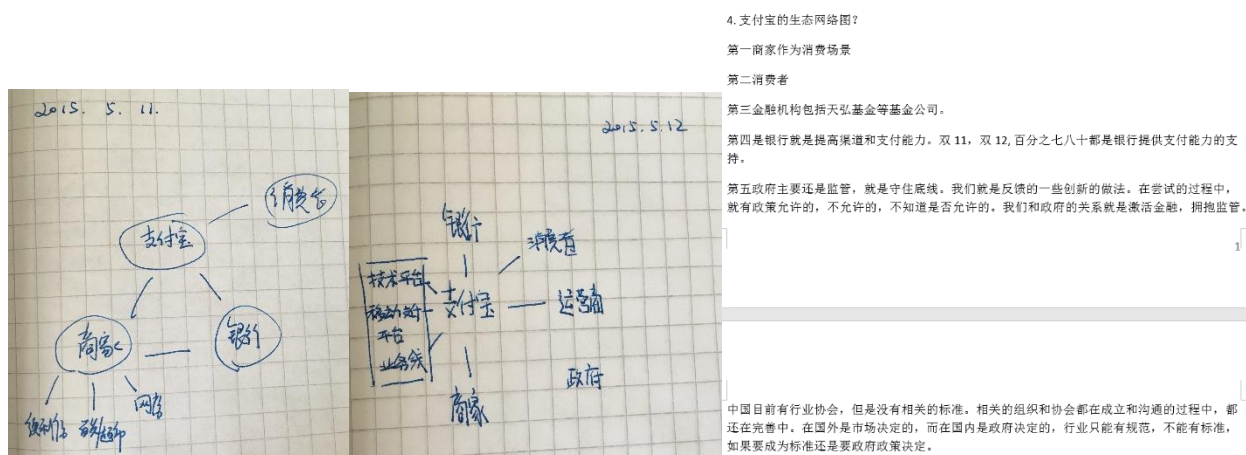 2015. 5. 11.
消费者
支付宝
商家
银行
网店
便利店
百货超市
2015.5.12
银行
消费者
技术平台
支付宝
运营商
移动支付
平台
业务线
政府
商家
4. 支付宝的生态网络图？
第一商家作为消费场景
第二消费者
第三金融机构包括天弘基金等基金公司。
第四是银行就是提高渠道和支付能力。双 11，双 12, 百分之七八十都是银行提供支付能力的支
持。
第五政府主要还是监管，就是守住底线。我们就是反馈的一些创新的做法。在尝试的过程中，
就有政策允许的，不允许的，不知道是否允许的。我们和政府的关系就是激活金融，拥抱监管。
1
中国目前有行业协会，但是没有相关的标准。相关的组织和协会都在成立和沟通的过程中，都
还在完善中。在国外是市场决定的，而在国内是政府决定的，行业只能有规范，不能有标准，
如果要成为标准还是要政府政策决定。